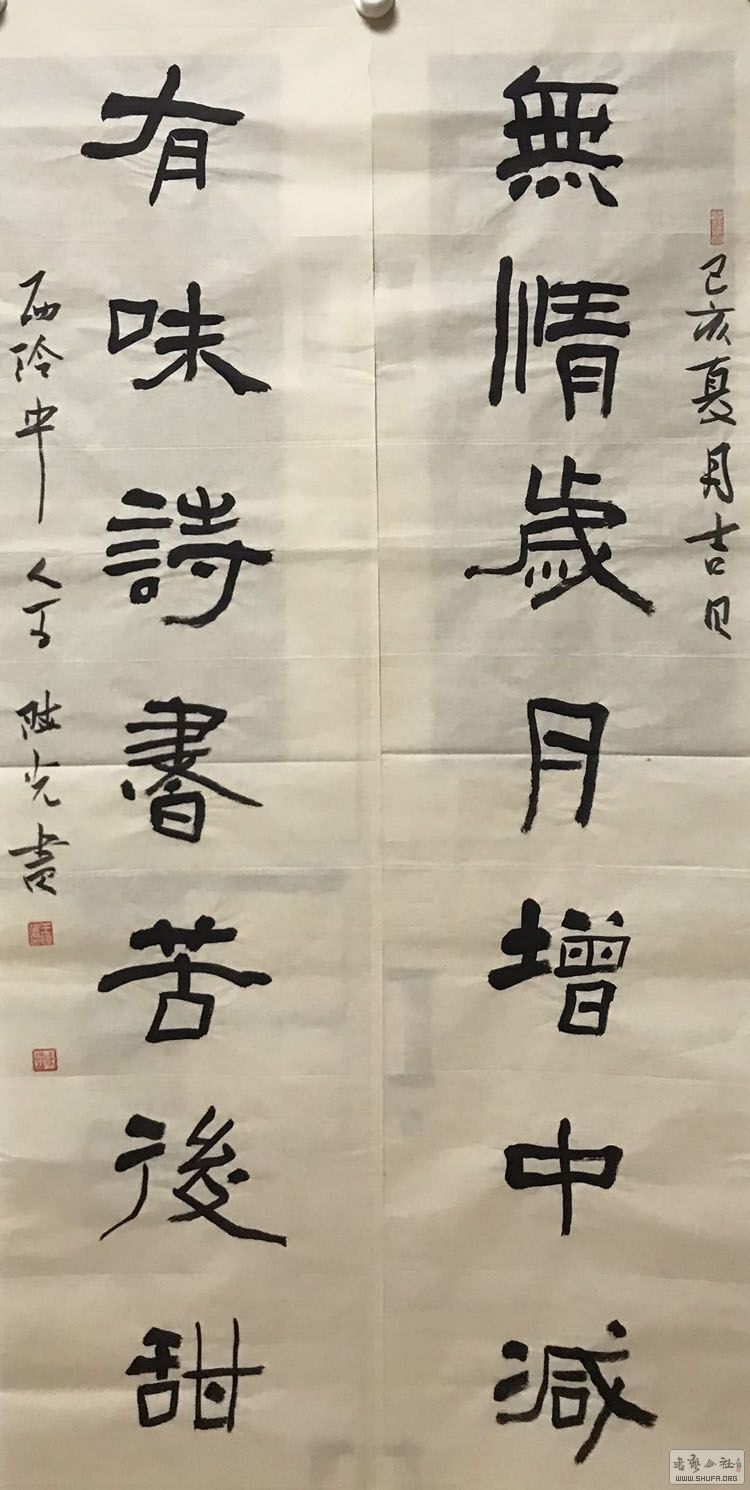 無情歲月增中減
己亥夏月吉日
有味詩書苦後甜
西泠中人 陆光書
書藝公社
WWW.SHUFA.ORG